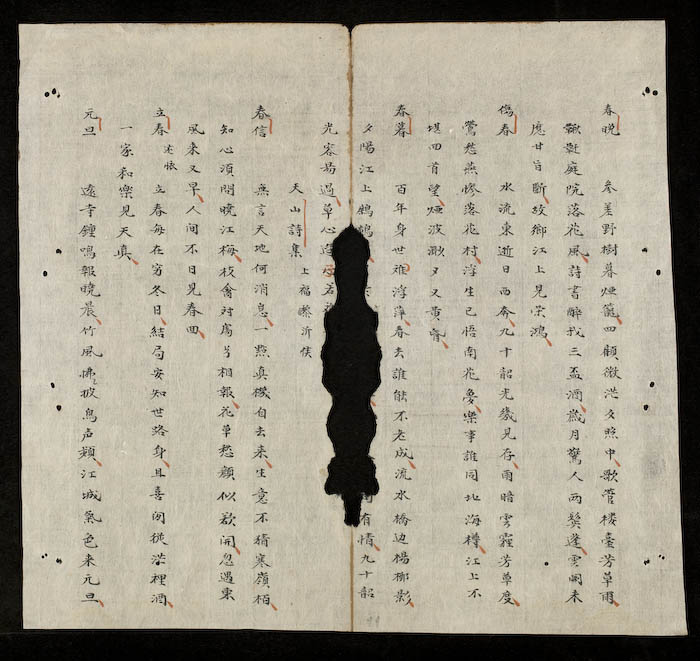 春晚 參差野樹暮煙籠四顧微茫夕照中歌管楼臺芳草雨
鞦韆庭院落花風詩書醉我三盃酒歲月驚人两鬓蓬雲闹未
應甘旨斷故鄉江上見鴻
傷春 水流東逝日西奔九十韶光幾見存雨暗雲霾芳草度
鶯愁燕惨落花村浮生已悟南花夢樂事誰同北海樽江上不
堪回首望煙波渺又又黄昏
春暮 百年身世难浮萍春去誰能不老成流水橋边楊柳影
夕陽江上鹧鸪 有情九十韶
光容易過草心
天山詩集 上福蔡沂侯
春信 無言天地何消息一點真機自去来生意不猜寒嶺栢
知心須問曉江梅枝禽対相報花草愁顏似欲開忽遇東
風来又早人间不日見春回
立春述懷 立春每在窮冬日結局安知世路身且喜例從裡酒
一家和樂見天真
元旦 遠寺鐘鳴報曉晨竹風怫々披鳥声頻江城氣色来元旦